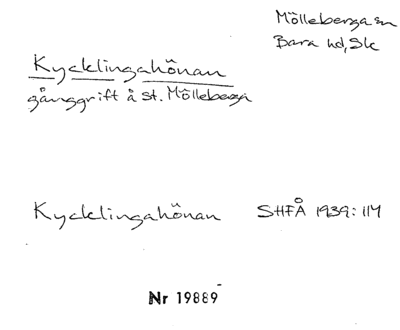 Mölleberga sn
Bara hd, Sk
Kycklingahönan
gånggrift å St. Mölleberga
Kycklingahönan SHFÅ 1939: 114
Nr 19889